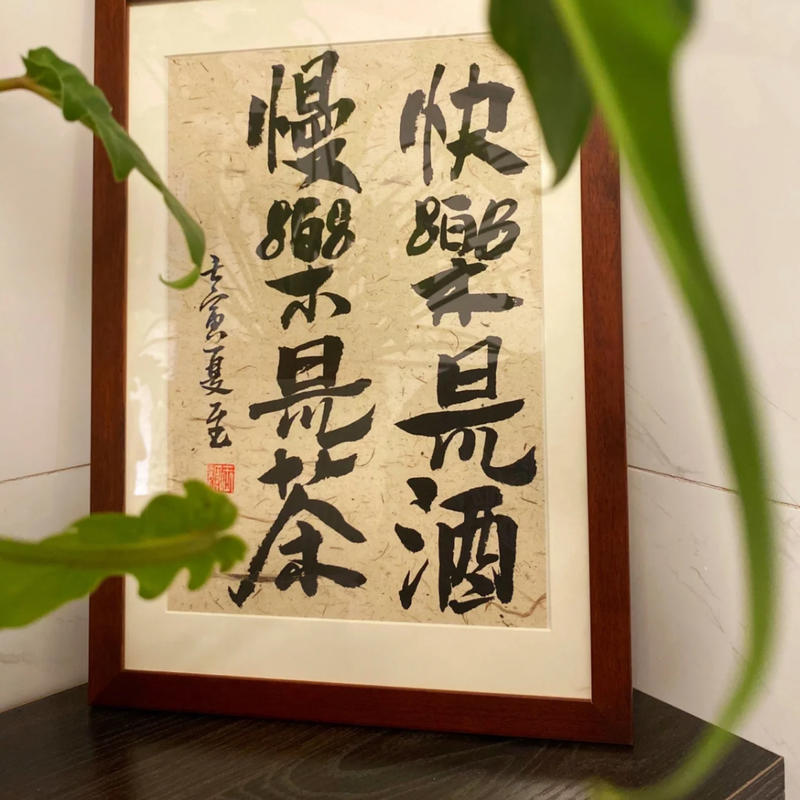 快樂是酒
慢樂是茶
壬寅夏至